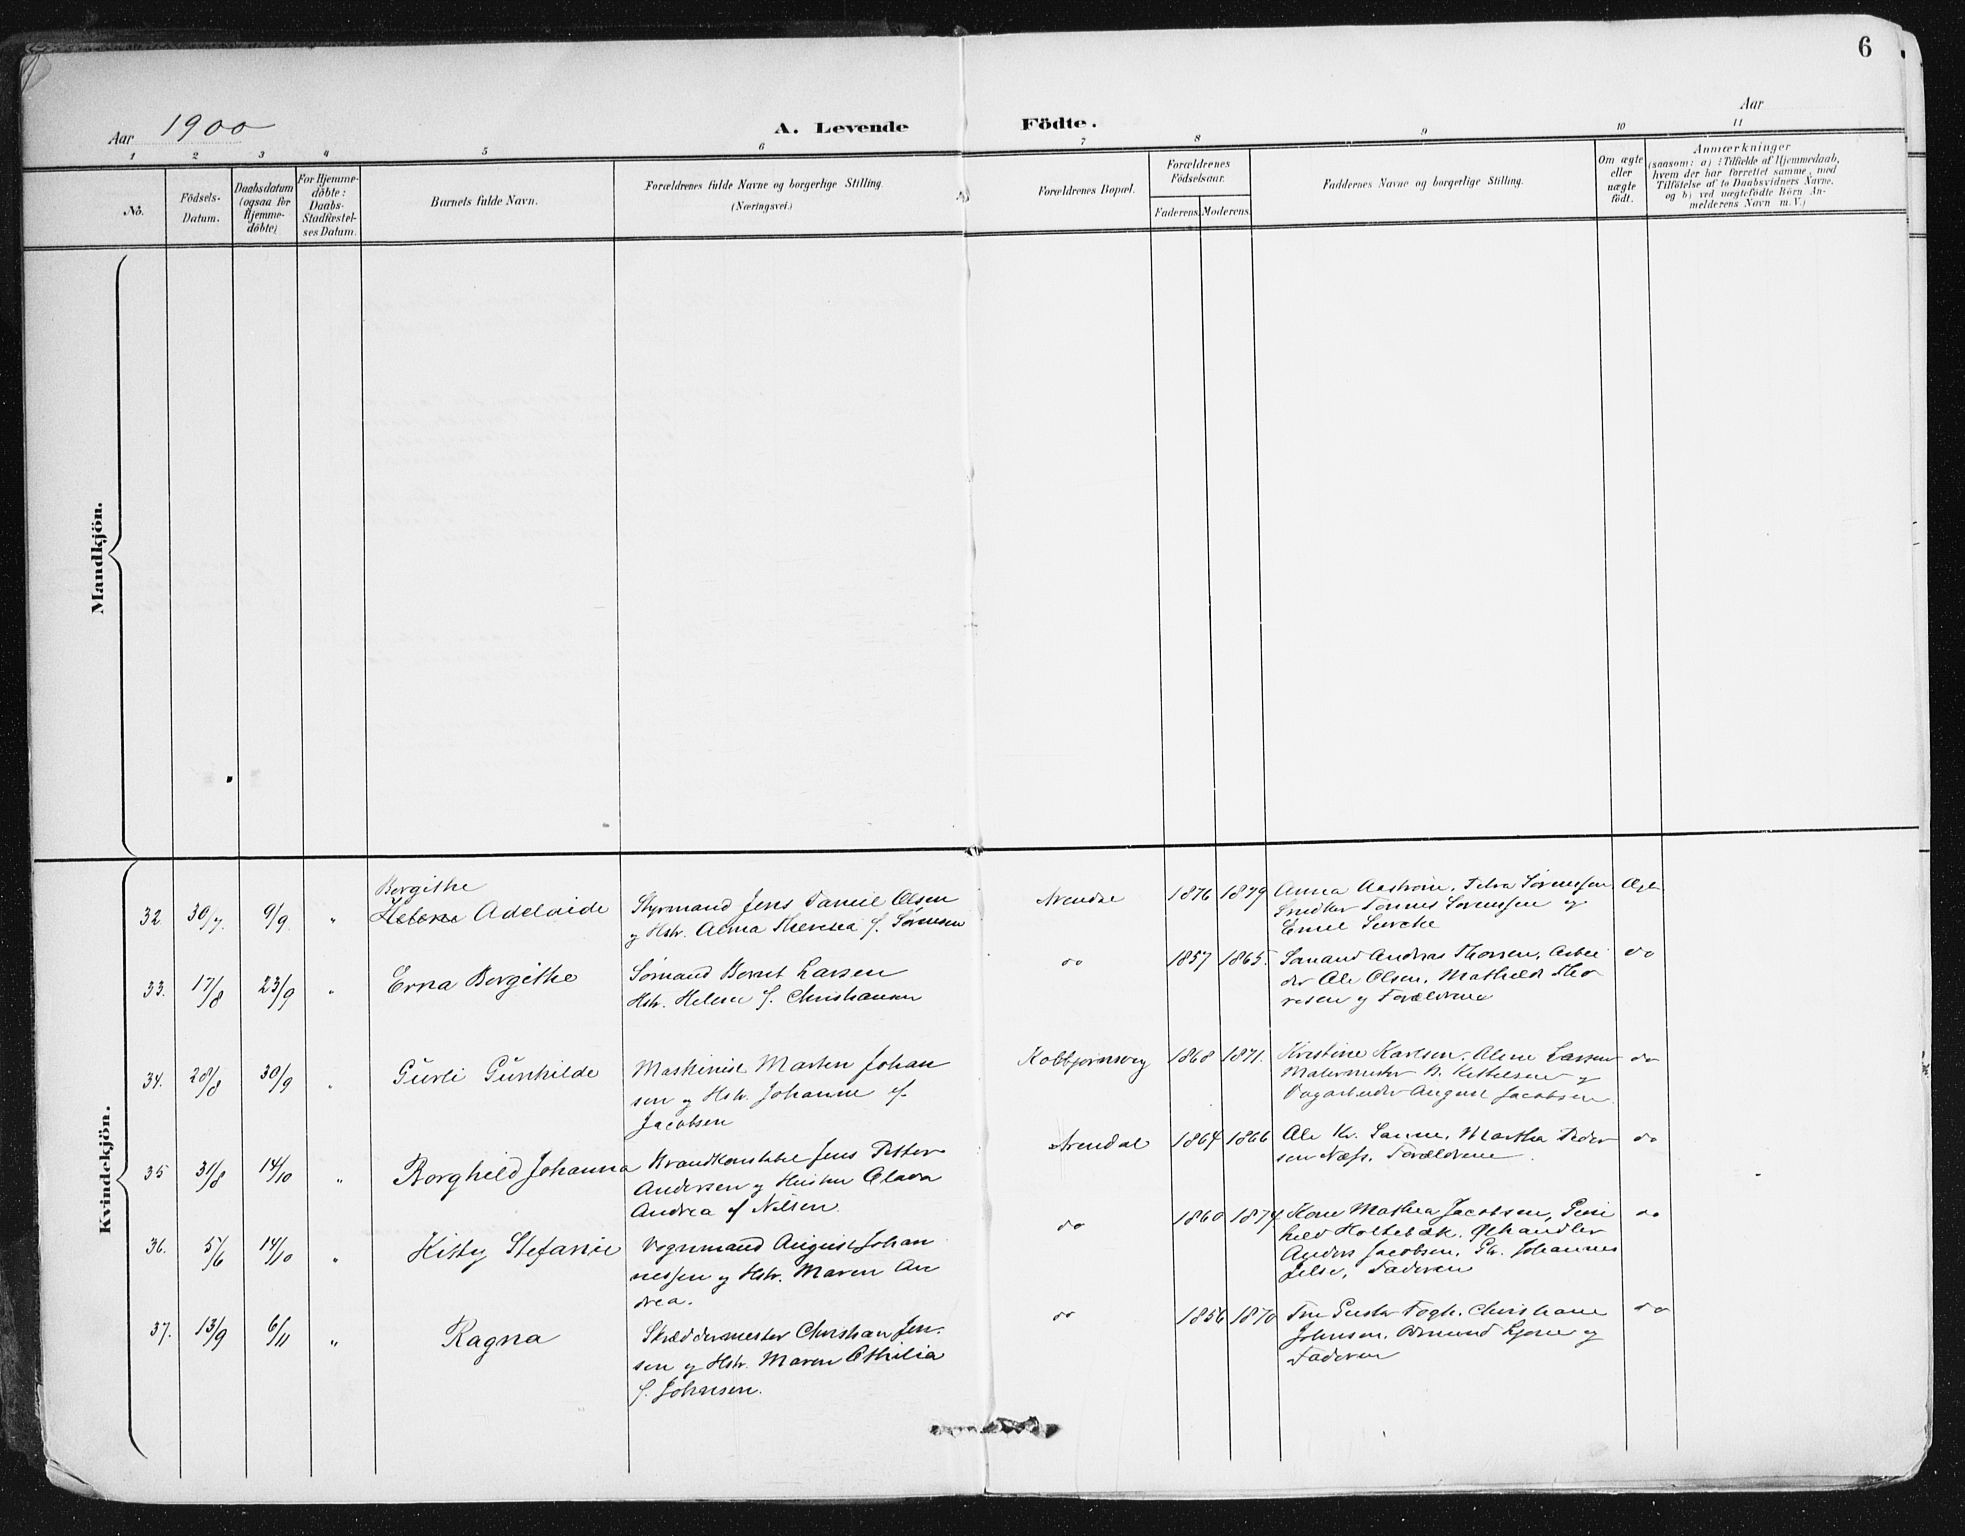 6
Aar 1900
A. Levende Födte.
Aar
1 2 3 4 5 6 7 8 9 10 11
No.
Födsels-
Datum.
Daabsdatum
(ogsaa for
Hjemme-
döbte)
For Hjemme-
döbte:
Daabs-
Stadfæstel-
ses Datum.
Barnets fulde Navn.
Forældrenes fulde Navne og borgerlige Stilling.
(Næringsvei.)
Forældrenes Bopæl.
Forældrenes
Födselsaar.
Faderens. Moderens.
Faddernes Navne og borgerlige Stilling.
Om ægte
eller
uægte
födt.
Anmærkninger
(saasom: a) i Tilfælde af Hjemmedaab,
hvem der har forrettet samme, med
Tilföielse af to Daabsvidners Navne,
og b) ved uægtefödte Börn An-
melderens Navn m. V.)
Mandkjön.
Kvindekjön.
32 30/7. 9/9. "
Borgithe
Helene Adelaide
Styrmand Jens Daniel Olsen
og Hstr. Alma Theresea f. Sørensen
Arendal 1876 1879
Anna Aastrøm, Petra Sørenssen
Snidker Tønnes Sørenssen og
Emil
Ægt
33. 17/8 23/9 "
Erna Borgithe
Sømand Bernt Larsen
Hstr. Helene f. Christiansen
do 1857 1865.
Sømand Andreas Thorsen, Arbei
der Ole Olsen, Mathilde Tho
resen og Forældrene
do
34. 28/8 30/9 "
Gurli Gunhilde
Maskinist Marten Johan
sen og Hstr. Johanne f.
Jacobsen
Kolbjørnsvig 1868 1871.
Kristine Karlsen, Aline Larsen
Malermester N. Kittelsen og
August Jacobsen.
do
35 31/8 14/10 "
Borghild Johanna
Brandkonstabel Jens Petter
Andersen og Hustru Olava
Andrea f Nilsen.
Arendal 1864 1866
Ole Kr. Martha Peder
sen Næss. Forældrene.
do
36. 5/6 14/10 "
Kitty Stefanie
Vognmand August Johan
nessen og Hstr. Maren An
drea.
do 1860 1874
Kone Mathea Jacobsen,
Holtebæk. Ghandler
Anders Jacobsen, Johannes
Faderen
do
37. 13/9 6/11 "
Ragna
Skræddermester Christian Jen-
sen og Hstr. Maren Othilia
f. Johnsen.
do 1856 1870
Fru Gusta Fogh, Christiane
Johnsen, og
Faderen
do